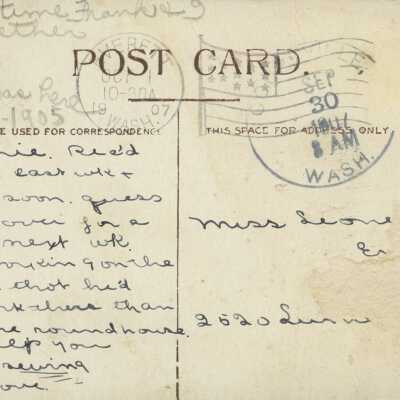 time Frank & I
ether
POST CARD.
OCT
10-30A
19 07
WASH.
SEP
30
8 AM
WASH.
as here
-1905
E USED FOR CORRESPONDENCE
THIS SPACE FOR ADDRESS ONLY
nie. Rec'd
east wk +
soon. guess
over for a
next wk.
working on the
that he'd
ink there than
e roundhouse.
elp you
sewing
ove.
Miss Leone
2520